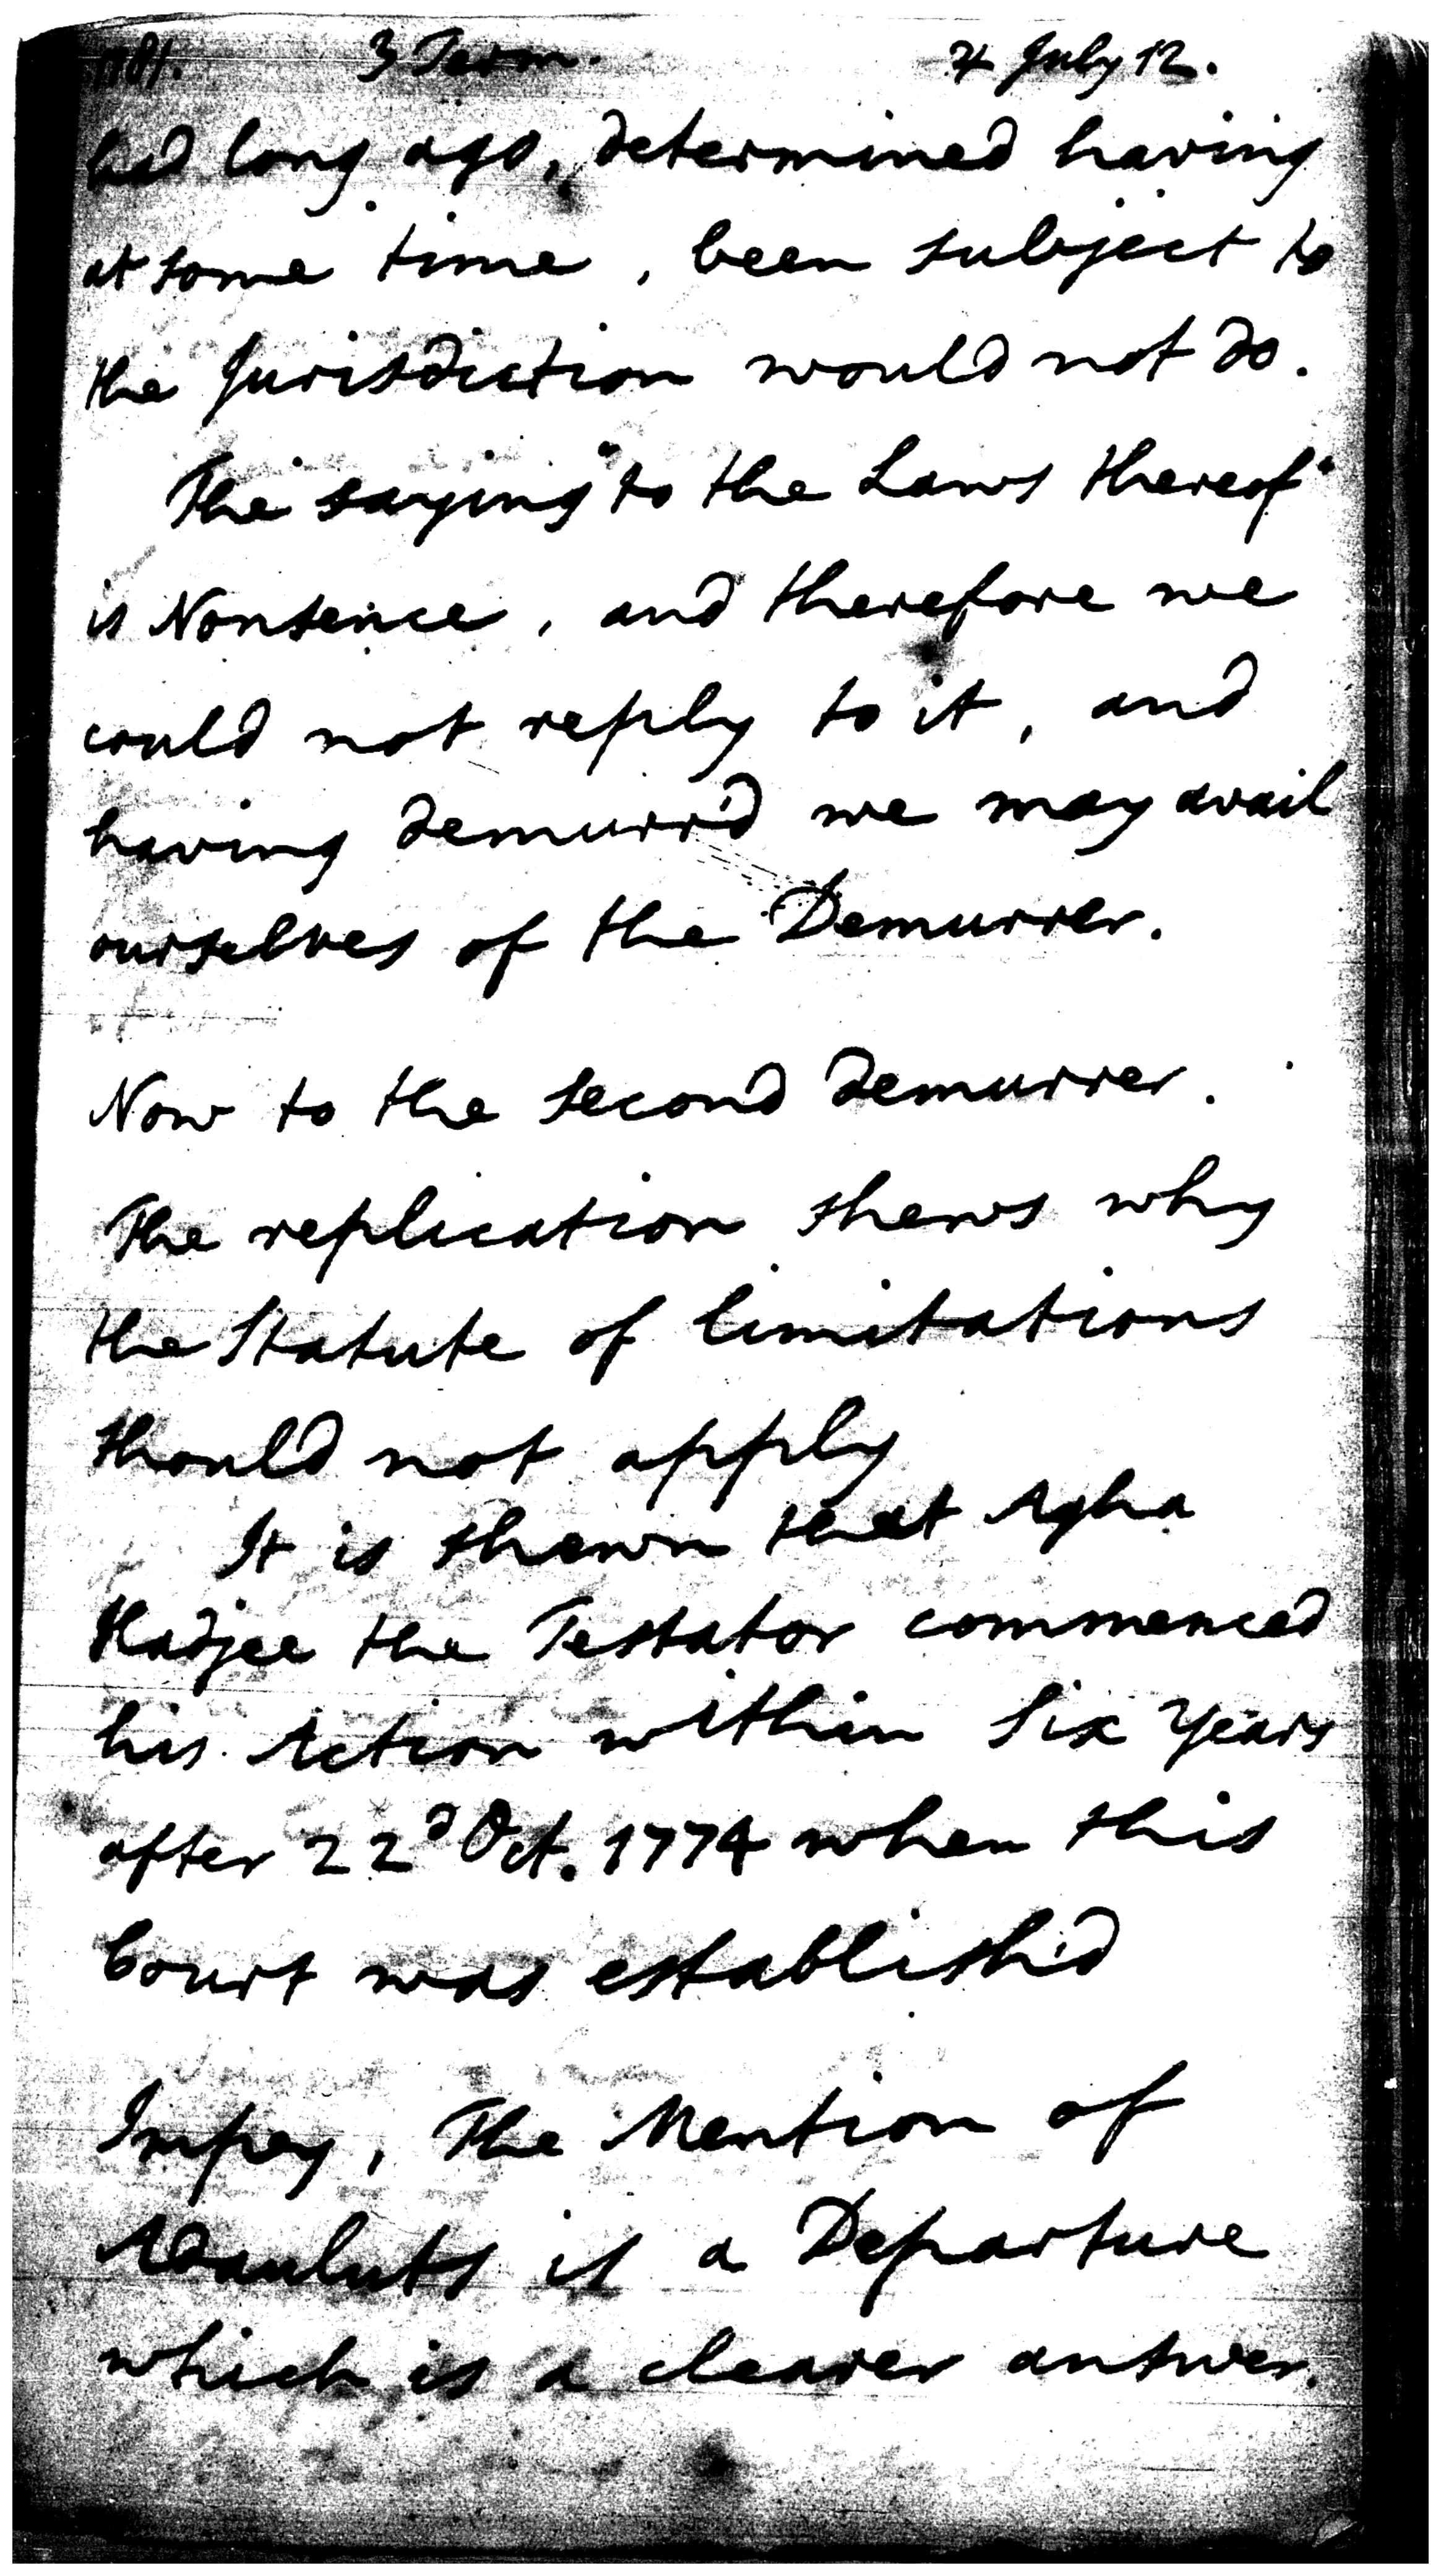 1781. 3 Term. 4 July 12.
had long ago, determined having
at some time, been subject to
the Jurisdiction would not do.
The saying "to the Laws thereof"
is Nonsence, and therefore we
could not reply to it, and
having demurr'd we may avail
ourselves of the Demurrer.
Now to the second demurrer.
The replication shews why
the Statute of limitations
should not apply
It is shewn that Agha
Hadjee the Testator commenced
his Action within Six Years
after 22d Oct. 1774 when this
Court was establish'd
Impey, The Mention of
Adauluts is a Departure
which is a clearer answer.